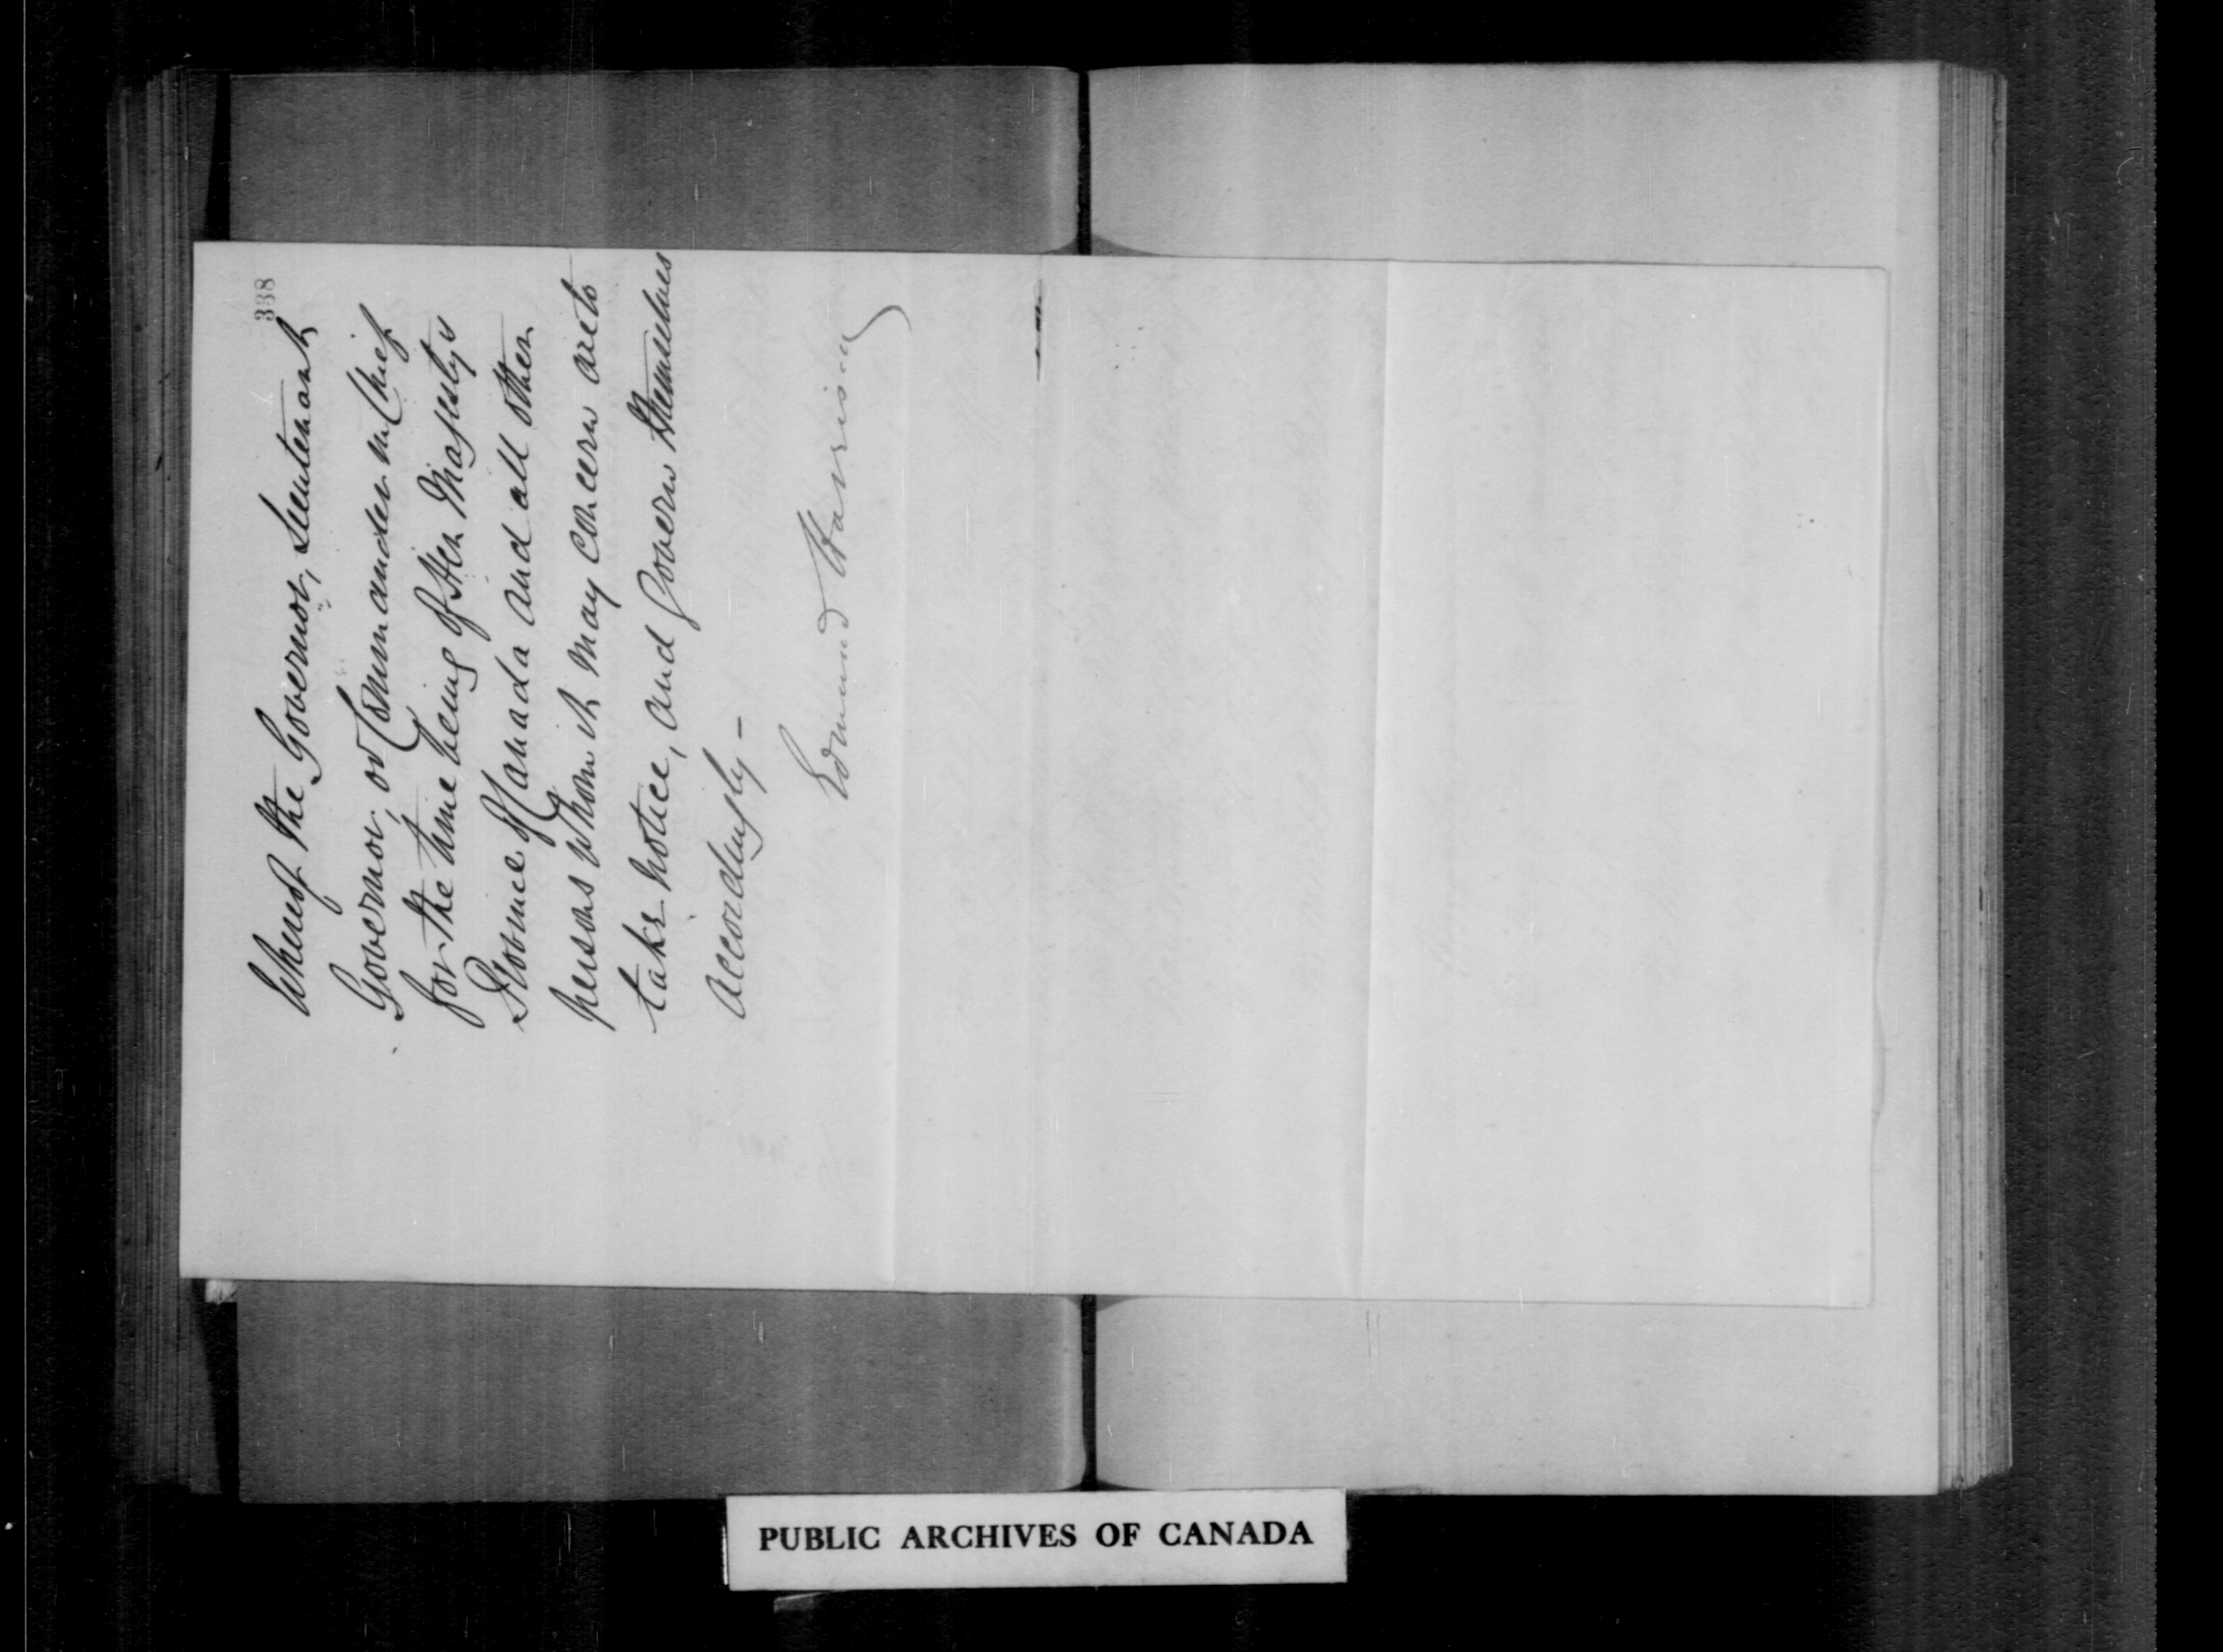 338
Whereof the Governor, Lieutenant
Governor, or Commander in Chief
for the time being of Her Majesty's
Province of Canada and all other
persons whom it may concern are to
take notice, and Govern themselves
accordingly –
Edmund Harrison
PUBLIC ARCHIVES OF CANADA